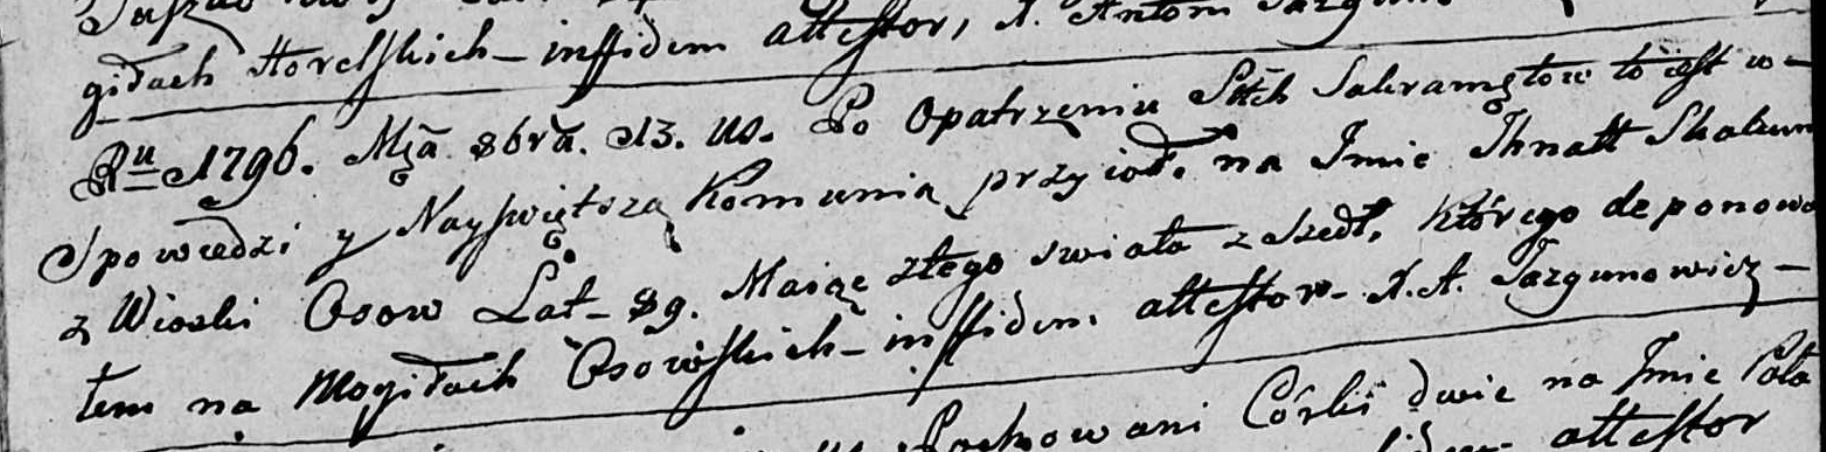 giłach Horelskich – inffidem attestor, X. Antoni Jazgunow
Ru 1796. Mca 8bra. d13. us. Po Opatrzeniu SSch Sakramętow to iest w–
Spowiedzi y Nayswiętszą Komunią przyioł. na Jmie Jhnatt Skakun
z Wioski Osow Lat – 89. Maiąc ztego swiata zszedł, którego deponowa
łem na Mogiłach Osowskich – inffidem. attestor – X. A. Jazgunowicz –
Pochowani Córki dwie na Jmie Pola
attestor